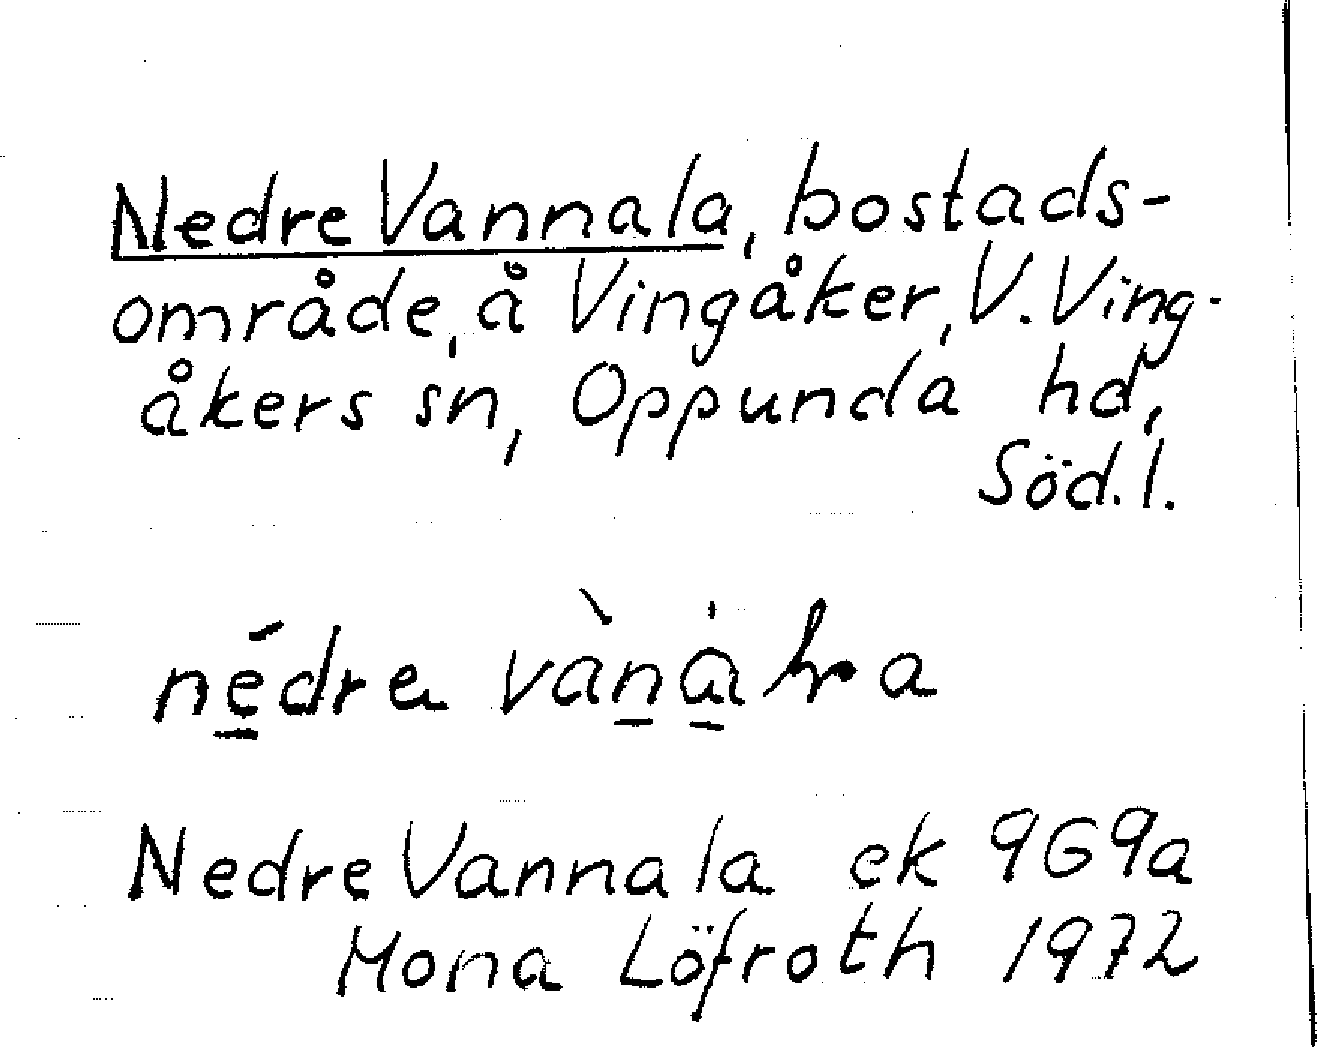 Nedre Vannala, bostads-
område, å Vingåker, V. Ving-
åkers sn, Oppunda hd,
Söd. l.
Nedre Vannala ek 9G9a
Mona Löfroth 1972